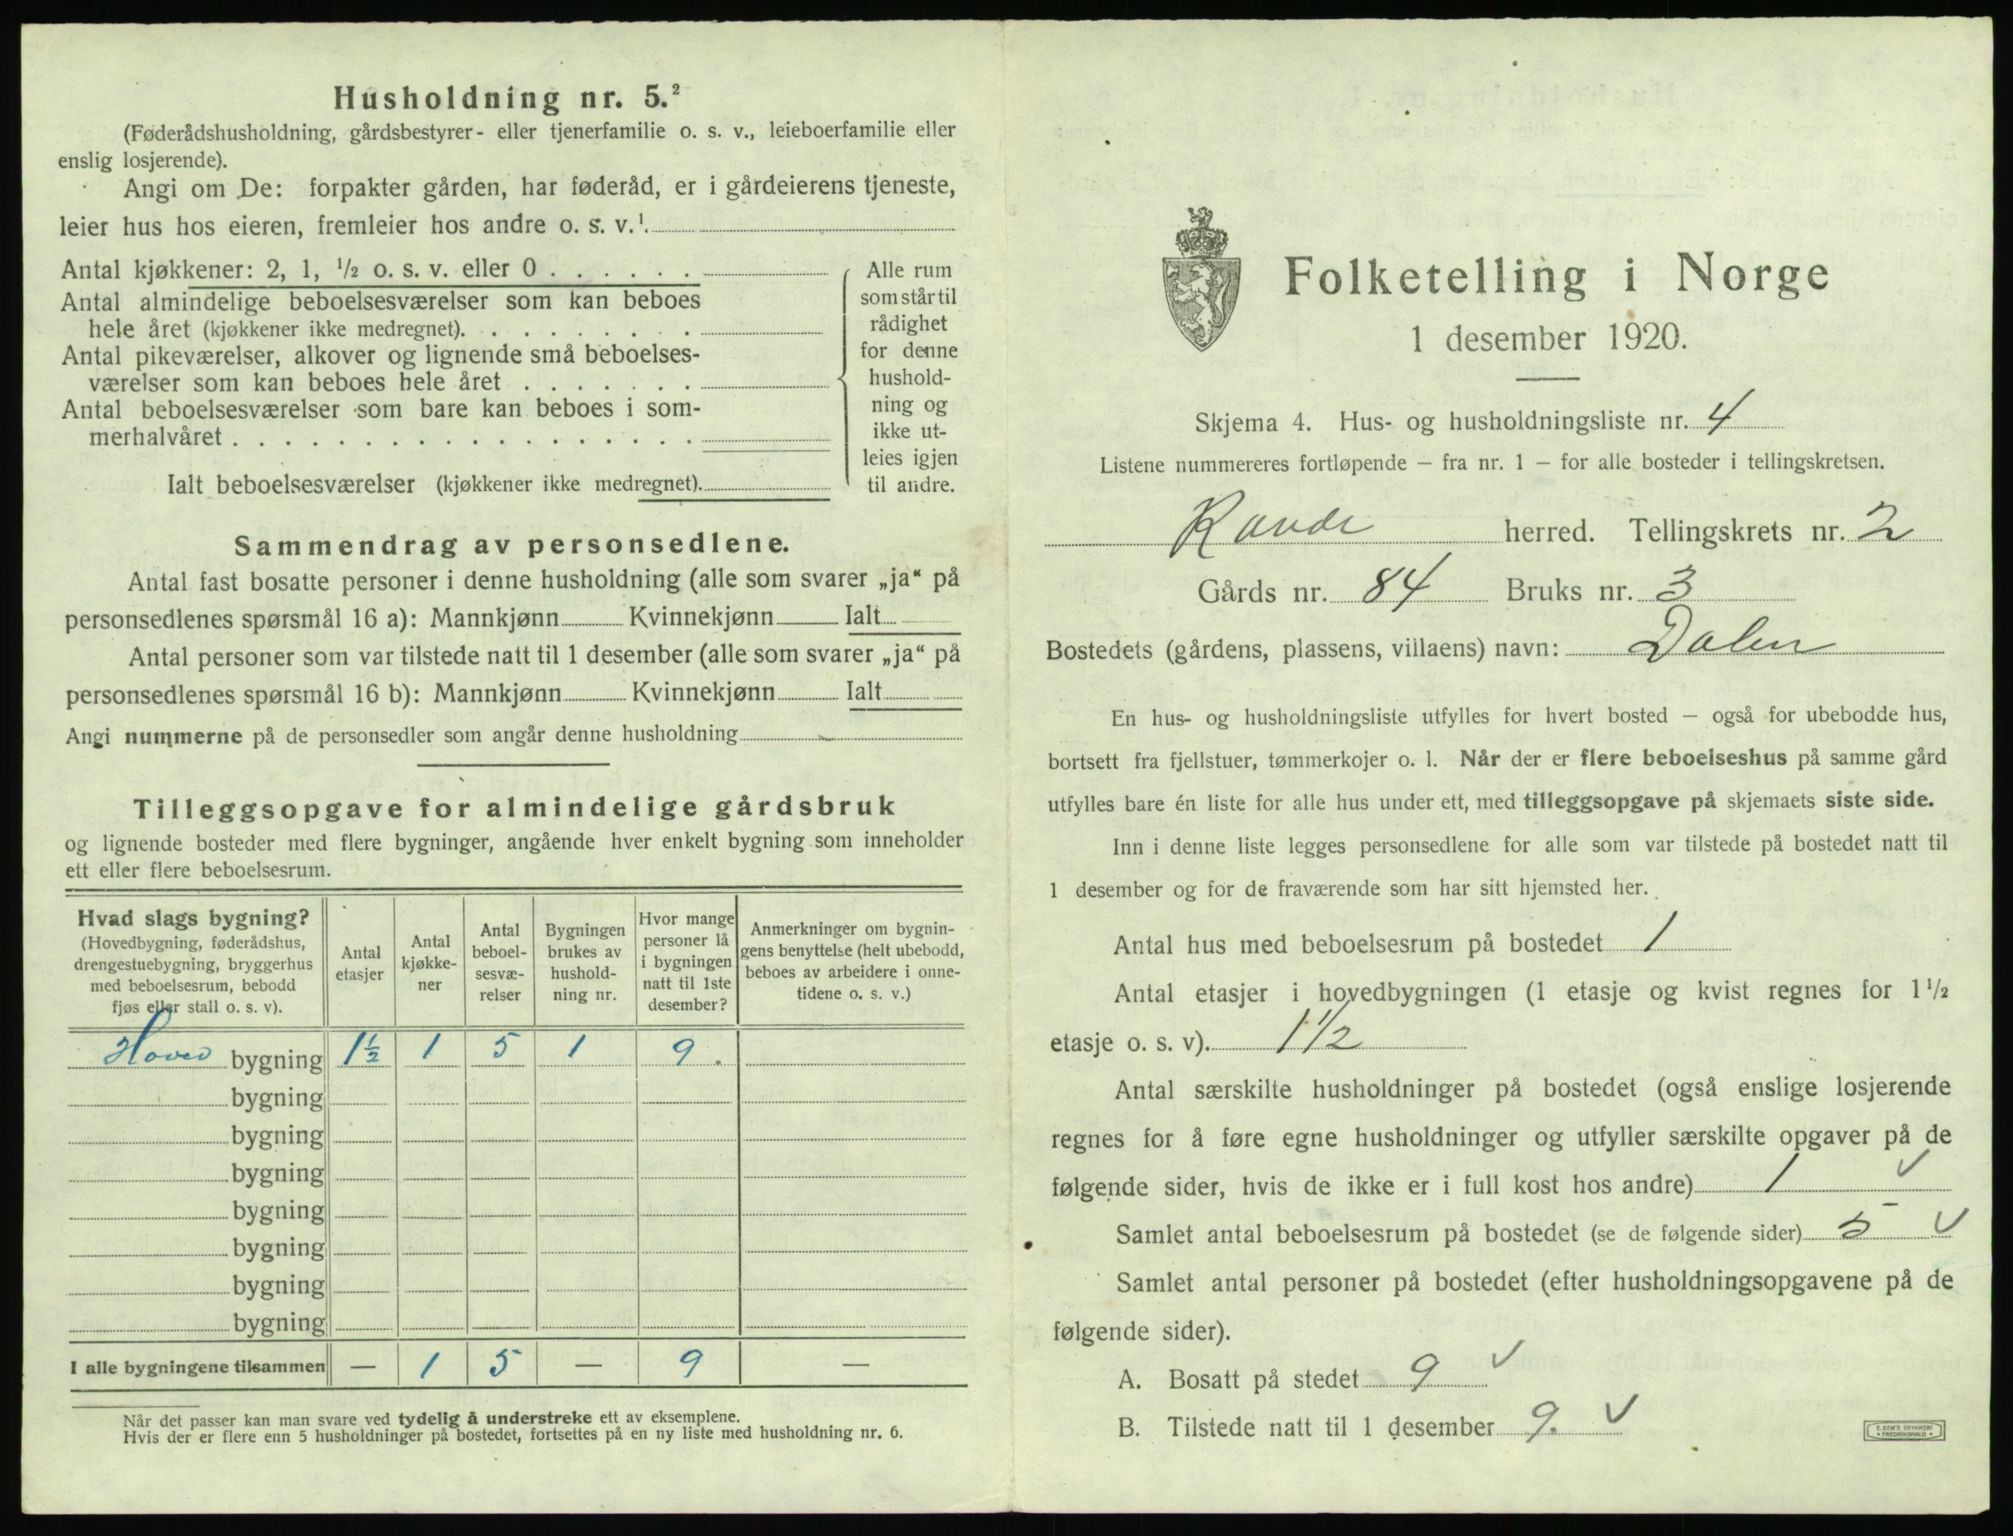 Husholdning nr. 5.²
(Føderådshusholdning, gårdsbestyrer- eller tjenerfamilie o. s. v., leieboerfamilie eller
enslig losjerende).
Angi om De: forpakter gården, har føderåd, er i gårdeierens tjeneste,
leier hus hos eieren, fremleier hos andre o. s. v.¹
Antal kjøkkener: 2, 1, ½ o. s. v. eller 0
Antal almindelige beboelsesværelser som kan beboes
hele året (kjøkkener ikke medregnet).
Antal pikeværelser, alkover og lignende små beboelses-
værelser som kan beboes hele året
Antal beboelsesværelser som bare kan beboes i som-
merhalvåret
Ialt beboelsesværelser (kjøkkener ikke medregnet).
Alle rum
som står til
rådighet
for denne
hushold-
ning og
ikke ut-
leies igjen
til andre.
Sammendrag av personsedlene.
Antal fast bosatte personer i denne husholdning (alle som svarer „ja“ på
personsedlenes spørsmål 16 a): Mannkjønn Kvinnekjønn Ialt
Antal personer som var tilstede natt til 1 desember (alle som svarer „ja“ på
personsedlenes spørsmål 16 b): Mannkjønn Kvinnekjønn Ialt
Angi nummerne på de personsedler som angår denne husholdning
Tilleggsopgave for almindelige gårdsbruk
og lignende bosteder med flere bygninger, angående hver enkelt bygning som inneholder
ett eller flere beboelsesrum.
Hvad slags bygning?
(Hovedbygning, føderådshus,
drengestuebygning, bryggerhus
med beboelsesrum, bebodd
fjøs eller stall o. s. v).
Antal
etasjer
Antal
kjøkke-
ner
Antal
beboel-
sesvæ-
relser
Bygningen
brukes av
hushold-
ning nr.
Hvor mange
personer lå
i bygningen
natt til 1ste
desember?
Anmerkninger om bygnin-
gens benyttelse (helt ubebodd,
beboes av arbeidere i onne-
tidene o. s. v.)
Hoved bygning 1½ 1 5 1 9.
bygning
bygning
bygning
bygning
bygning
bygning
bygning
I alle bygningene tilsammen — 1 5 — 9 —
Når det passer kan man svare ved tydelig å understreke ett av eksemplene.
Hvis der er flere enn 5 husholdninger på bostedet, fortsettes på en ny liste med husholdning nr. 6.
Folketelling i Norge
1 desember 1920.
Skjema 4. Hus- og husholdningsliste nr. 4
Listene nummereres fortløpende – fra nr. 1 – for alle bosteder i tellingskretsen.
Raade herred. Tellingskrets nr. 2
Gårds nr. 84 Bruks nr. 3
Bostedets (gårdens, plassens, villaens) navn: Dalen
En hus- og husholdningsliste utfylles for hvert bosted – også for ubebodde hus,
bortsett fra fjellstuer, tømmerkojer o. l. Når der er flere beboelseshus på samme gård
utfylles bare én liste for alle hus under ett, med tilleggsopgave på skjemaets siste side.
Inn i denne liste legges personsedlene for alle som var tilstede på bostedet natt til
1 desember og for de fraværende som har sitt hjemsted her.
Antal hus med beboelsesrum på bostedet 1
Antal etasjer i hovedbygningen (1 etasje og kvist regnes for 1½
etasje o. s. v). 1½
Antal særskilte husholdninger på bostedet (også enslige losjerende
regnes for å føre egne husholdninger og utfyller særskilte opgaver på de
følgende sider, hvis de ikke er i full kost hos andre) 1 ✓
Samlet antal beboelsesrum på bostedet (se de følgende sider) 5 ✓
Samlet antal personer på bostedet (efter husholdningsopgavene på de
følgende sider).
A. Bosatt på stedet 9 ✓
B. Tilstede natt til 1 desember 9. ✓